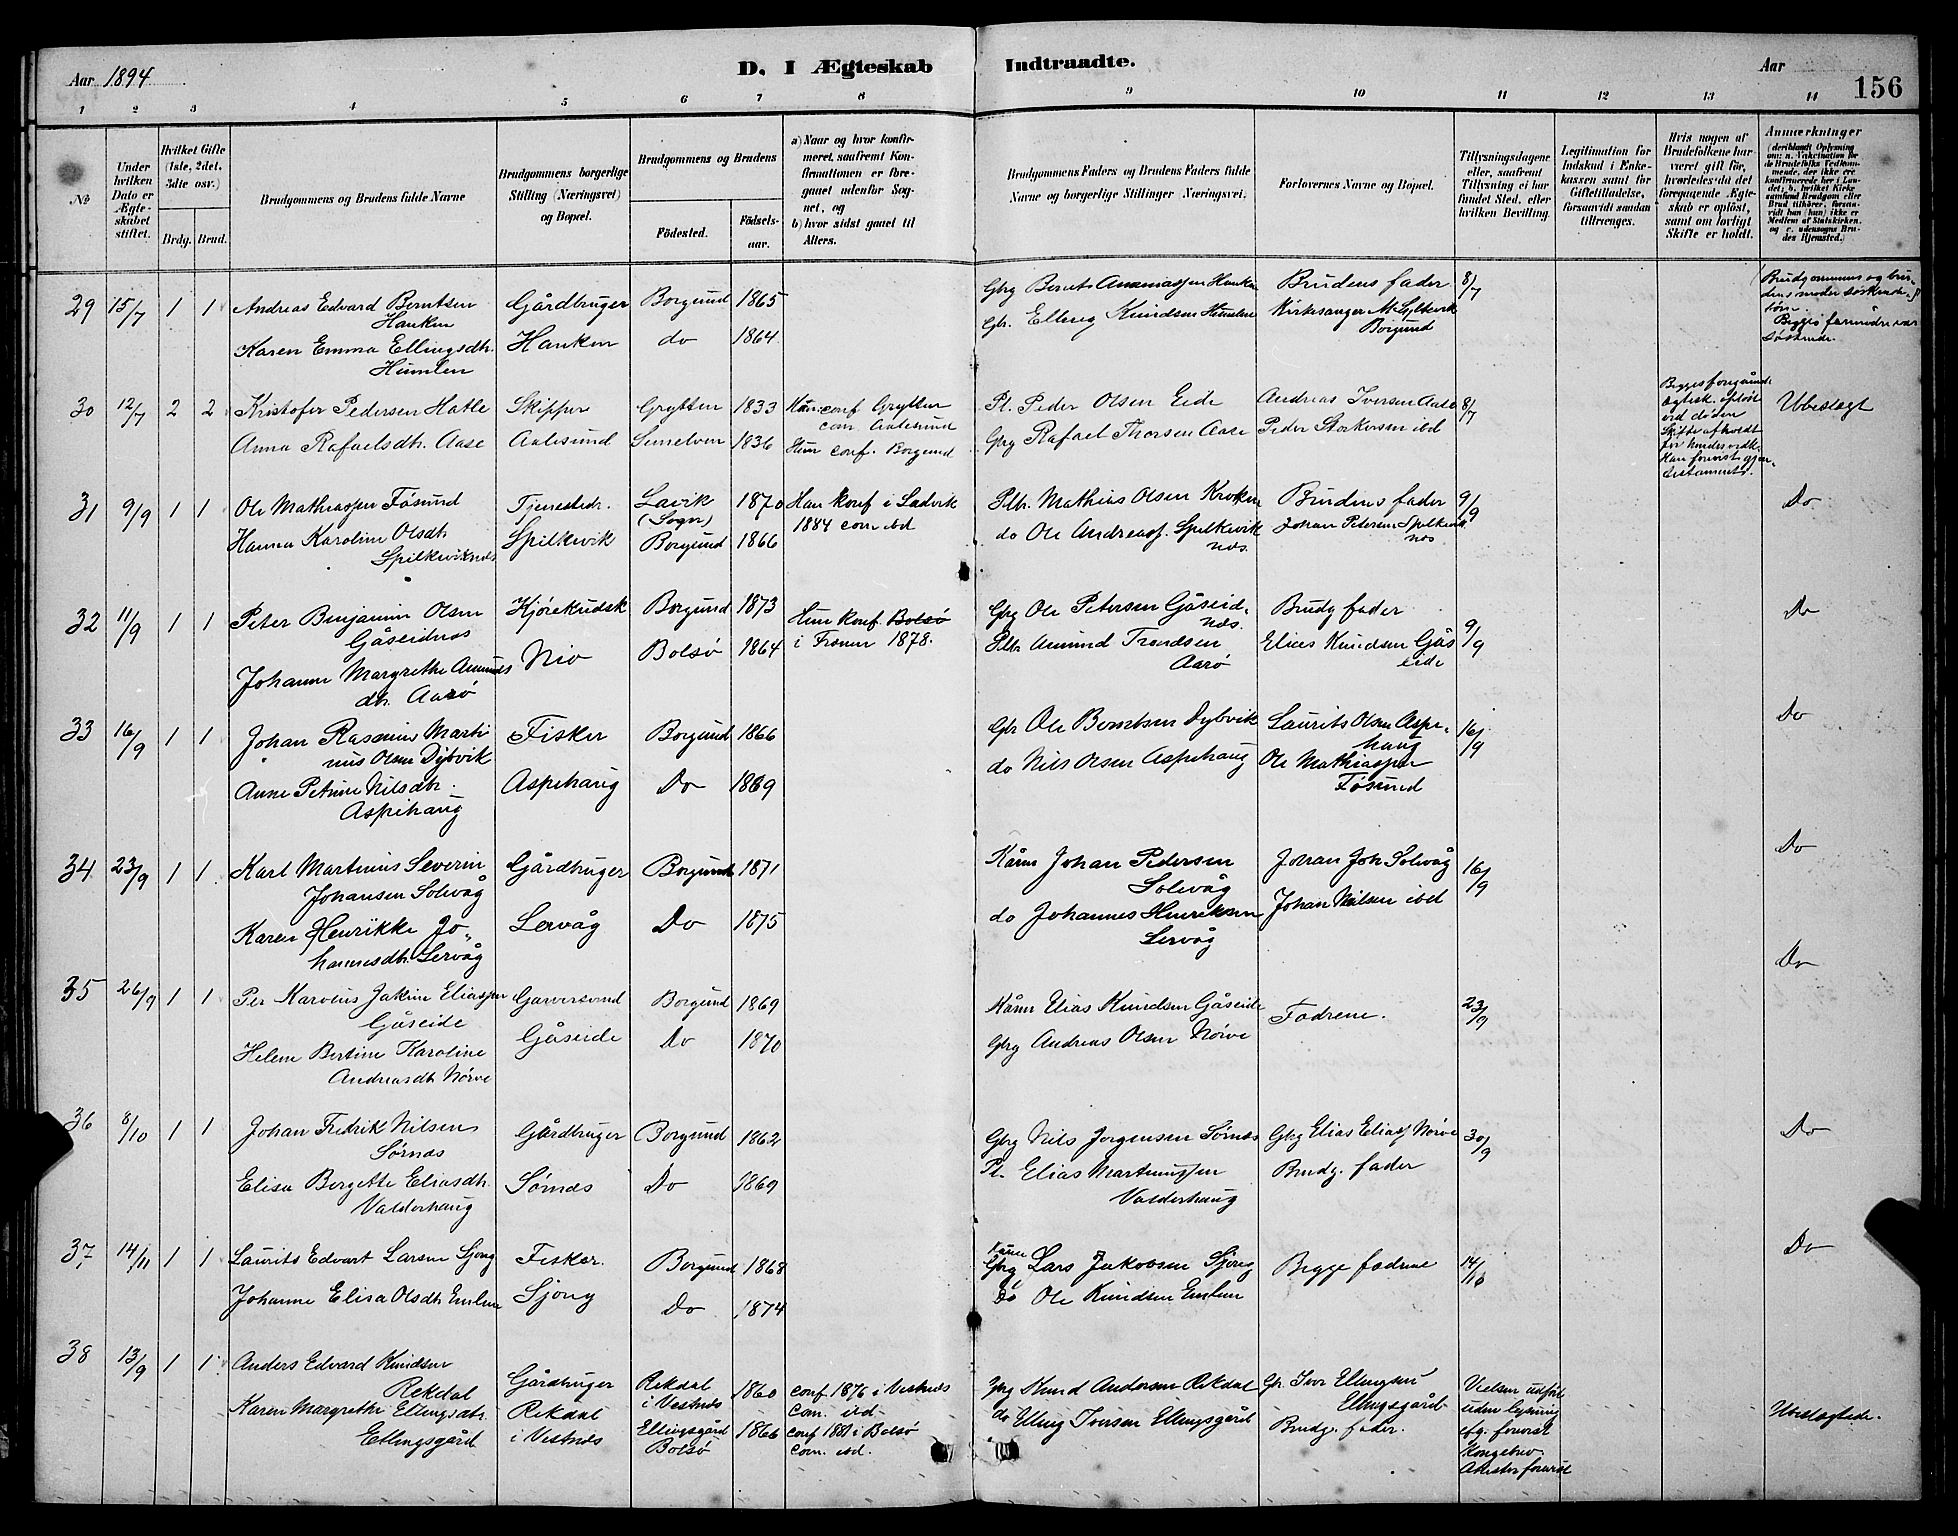 Aar 1894
D. I Ægteskab Indtraadte.
Aar
156
1 2 3 4 5 6 7 8 9 10 11 12 13 14
No
Under hvilken Dato er Ægteskabet stiftet.
Hvilket Gifte (1ste, 2det, 3die osv.)
Brdg. Brud.
Brudgommens og Brudens fulde Navne
Brudgommens borgerlige Stilling (Næringsvei) og Bopæl.
Brudgommens og Brudens
Födested.
Födsels-aar.
a) Naar og hvor konfirmeret, saafremt Konfirmationen er foregaaet udenfor Sognet, og
b) hvor sidst gaaet til Alters.
Brudgommens Faders og Brudens Faders fulde Navne og borgerlige Stillinger Næringsvei.
Forlovernes Navne og Bopæl.
Tillysningsdagene eller, saafremt Tillysning ei har fundet Sted, efter hvilken Bevilling.
Legitimation for Indskud i Enkekassen samt for Giftetilladelse, forsaavidt saadan tiltrænges.
Hvis nogen af Brudefolkene har været gift för, hvorledes da det foregaaende Ægteskab er oplöst, samt om lovligt Skifte er holdt.
Anmærkninger
29 15/7 1 1 Andreas Edvard Berntsen Gårdbruger Borgund 1865
Hanken
Karen Emma Ellingsdtr. Hanken do 1864
Humlen
Gbg Bernt Ananiassen Hanken Brudens fader 8/7
Gbr. Elling Knudsen Humlen Kirkesanger
Borgund
30 12/7 2 2 Kristofer Pedersen Hatle Skipper Grytten 1833 Han conf Grytten
com. Aalesund
Anna Rafaelsdtr. Aase Aalesund 1836 Hun conf. Borgund
Pl. Peder Olsen Eide Andreas Iversen Aase 8/7
Gbg Rafael Thorsen Aase Peder Storkersen ibd
Ubeslegt
31 9/9 1 1 Ole Mathiassen Fösund Tjenestedr. Lavik 1870 Han konf i Ladvik
(Sogn) 1884 com ibd
Hanna Karoline Olsdtr. Spilkevik Borgund 1866
Spilkeviknes
Plbr. Mathias Olsen Kroken Brudens fader 9/9
do Ole Andreass. Spilkevik Johan Petersen Spilkevik
nes. nes
Do
32 11/9 1 1 Peter Benjamin Olsen Kjørekudsk Borgund 1873 Hun konf. Bolsø
Gåseidnes i Frænen 1878.
Johanne Margrethe Amunds Bolsø 1864
dtr. Aarø
Gbg Ole Petersen Gåseid- Brudg fader 9/9
nes.
Plbr Amund Trondsen Elias Knudsen Gås
Aarø eide
Do
33 16/9 1 1 Johan Rasmus Marti Fisker Borgund 1866
nus Olsen Dybvik
Anne Petrine Nilsdtr. Aspehaug Do 1869
Aspehaug
Gbr Ole Berntsen Dybvik Laurits Olsen Aspe- 16/9
haug
do Nils Olsen Aspehaug Ole Mathiassen
Fösund
Do
34 23/9 1 1 Karl Martinus Severin Gårdbruger Borgund 1871
Johansen Solevåg
Karen Henrikke Jo- Lervåg Do 1875
hannesdtr. Lervåg
Kårm Johan Pedersen Johan Joh. Solevåg 16/9
Solevåg
do Johannes Henriksen Johan Nilsen ibd
Lervåg
Do
35 26/9 1 1 Per Karolus Jakim Eliassen Garversvend Borgund 1869
Gåseide
Helene Bertine Karoline Gåseide Do 1870
Andreasdtr. Nørve
Kårm Elias Knudsen Gåseide Fædrene. 23/9
Gbg Andreas Olsen Nørve
Do
36 8/10 1 1 Johan Fredrik Nilsen Gårdbruger Borgund 1862
Sørnes
Elisa Bergette Eliasdtr. Sørnes Do 1869
Valderhaug
Gbg Nils Jørgensen Sørnes Gbg Elias Eliass Nørve 30/9
Pl. Elias Martinussen Brudg. fader
Valderhaug
Do
37 14/11 1 1 Laurits Edvart Larsen Sjong Fisker. Borgund 1868
Johanne Elisa Olsdtr Emlem Sjong Do 1874
Kårm
Gbg Lars Jakobsen Sjong Begge fædrene 14/10
Do Ole Knudsen Emlem
Do
38 13/9 1 1 Anders Edvard Knudsen Gårdbruger Rekdal 1860 conf 1876 i Vestnes
Rekdal i Vestnes com. ibd
Karen Margrethe Ellingsdtr. Rekdal Ellingsgård 1866 conf 1881 i Bolsø
Ellingsgård i Vestnes Bolsø com. ibd.
Gbg Knud Andersen Rekdal Gr. Iver Ellingsen
Ellingsgård
do Elling Iversen Ellingsgård Brudg. fader.
Vielsen udført
uden lysning
efg. forevist
Kongebrev
Attester forevist
Ubeslegtede.